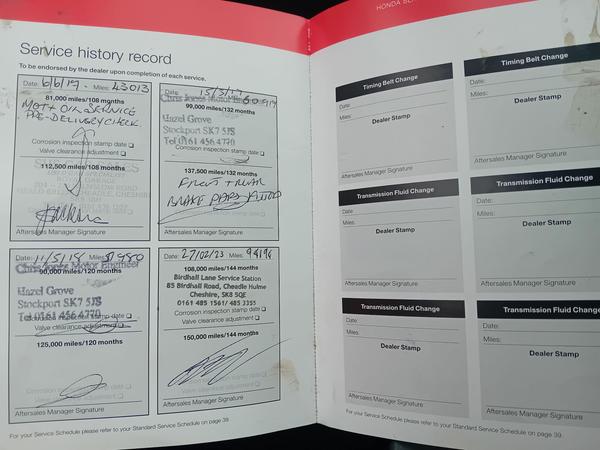 Service history record
To be endorsed by the dealer upon completion of each service.
Date: 6/6/17 Miles: 43013
81,000 miles/108 months
MOT + OIL SERVICE
PRE-DELIVERY CHECK.
Corrosion inspection stamp date
Valve clearance adjustment
112,500 miles/108 months
Aftersales Manager Signature
Date: 15/5/19 Miles:
Chris Jones Motor Engineer
99,000 miles/132 months
Hazel Grove
Stockport SK7 5JS
Tel 0161 456 4770
137,500 miles/132 months
FRONT + REAR
BRAKE PADS FITTED
Aftersales Manager Signature
Date: 11/5/18 Miles: 51980
Chris Jones Motor Engineer
90,000 miles/120 months
Hazel Grove
Stockport SK7 5JS
Tel 0161 456 4770
Valve clearance adjustment
125,000 miles/120 months
Corrosion inspection stamp date
Valve clearance adjustment
Aftersales Manager Signature
Date: 27/02/23 Miles: 94194
108,000 miles/144 months
Birdhall Lane Service Station
85 Birdhall Road, Cheadle Hulme
Cheshire, SK8 5QE
0161 485 1561/ 485 3355
Corrosion inspection stamp date
Valve clearance adjustment
150,000 miles/144 months
Corrosion inspection stamp date
Valve clearance adjustment
Aftersales Manager Signature
For your Service Schedule please refer to your Standard Service Schedule on page 39.
HONDA
Timing Belt Change
Date:
Miles:
Dealer Stamp
Aftersales Manager Signature
Timing Belt Change
Date:
Miles:
Dealer Stamp
Aftersales Manager Signature
Transmission Fluid Change
Date:
Miles:
Dealer Stamp
Aftersales Manager Signature
Transmission Fluid Change
Date:
Miles:
Dealer Stamp
Aftersales Manager Signature
Transmission Fluid Change
Date:
Miles:
Dealer Stamp
Aftersales Manager Signature
Transmission Fluid Change
Date:
Miles:
Dealer Stamp
Aftersales Manager Signature
For your Service Schedule please refer to your Standard Service Schedule on page 39.